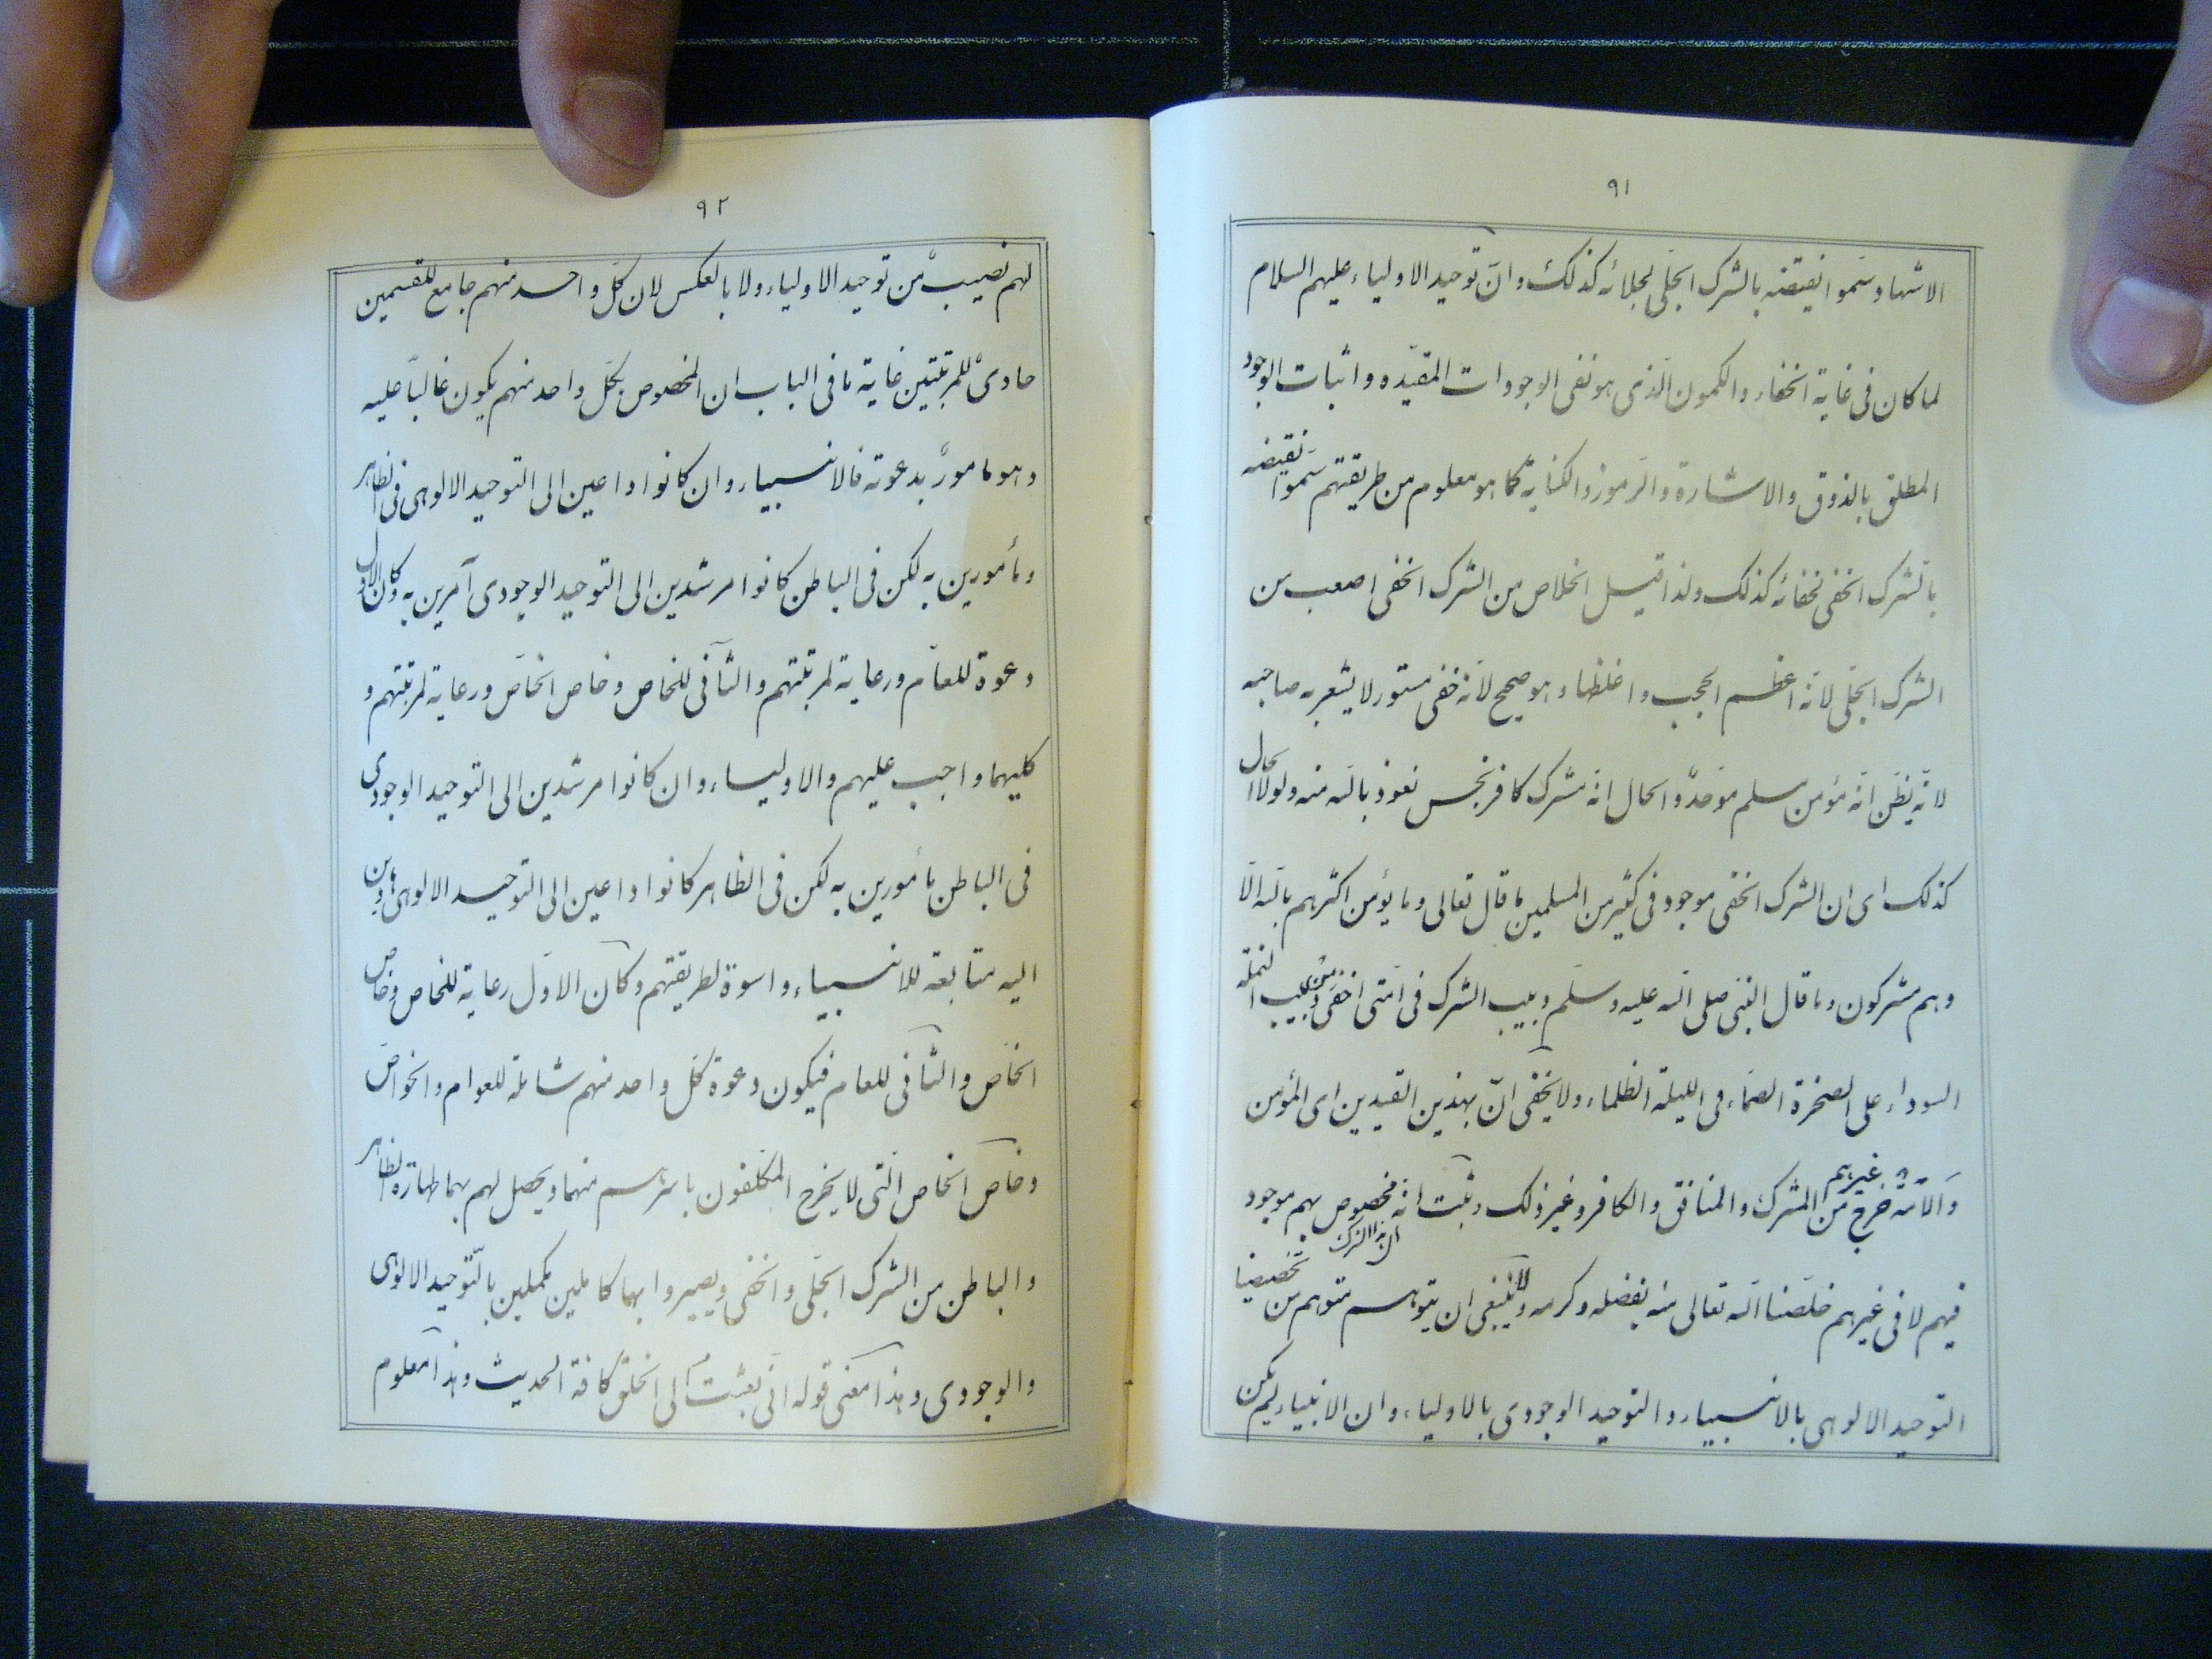 ٩١
الاشهاد سَموا نقيضه بالشرك الجلّى لجلائه كذلك وانّ توحيد الاولياء عليهم السلام
لما كان فى غاية الخفاء والكمون الّذى هو نفى الوجودات المقيّده واثبات الوجود
المطلق بالذوق والاشارة والرّموز والكناية كما هو معلوم من طريقتهم سَموا نقيضه
بالشرك الخفى لخفائه كذلك ولذا قيل الخلاص من الشرك الخفى اصعب من
الشرك الجلّى لانّه اعظم الحجب واغلظها وهو صحيح لانّه خفى مستور لا يشعر به صاحبه
لانّه يظنّ انّه مؤمن مسلم موَحدٌ والحال انّه مشرك كافر نجس نعوذ بالله منه ولولا الحال
كذلك اى ان الشرك الخفى موجود فى كثير من المسلمين ما قال تعالى وما يؤمن اكثرهم بالله الّا
وهم مشركون وما قال النبّى صلى الله عليه وسلّم دبيب الشرك فى امّتى اخفى من دبيب النملة
السوداء على الصخرة الصمّاء فى الليلة الظلماء ولا يخفى انّ بهذين القيدين اى المؤمن
والامّة خرج غيرهم من المشرك والمنافق والكافر وغير ذلك وثبت انّه مخصوص بهم موجود
فيهم لا فى غيرهم خلّصنا الله تعالى منه بفضله وكرمه ولا ينبغى ان يتوهم متوهم من تخصيصنا
التوحيد الالوهى بالانبياء والتوحيد الوجودى بالاولياء وان الانبياء لم يكن
٩٢
لهم نصيبٌ من توحيد الاولياء ولا بالعكس لان كلّ واحد منهم جامع للقسمين
حاوىٌ للمرتبتين غاية ما فى الباب ان المخصوص بكلّ واحد منهم يكون غالباً عليه
وهو مامورٌ بدعوته فالانبياء وان كانوا داعين الى التوحيد الالوهى فى الظاهر
ومأمورين به لكن فى الباطن كانوا مرشدين الى التوحيد الوجودى آمرين به وكان الاول
دعوة للعامّ ورعاية لمرتبتهم والثّانى للخاص وخاص الخاصّ ورعاية لمرتبتهم و
كليهما واجب عليهم والاولياء وان كانوا مرشدين الى التوحيد الوجودى
فى الباطن مأمورين به لكن فى الظاهر كانوا داعين الى التوحيد الالوهى هادين
اليه متابعة للانبياء واسوة لطريقتهم وكان الاوّل رعاية للخاص وخاص
الخاصّ والثّانى للعام فيكون دعوة كلّ واحد منهم شاملة للعوام والخواصّ
وخاصّ الخاص الّتى لا يخرج المكلّفون باسرهم منهما ويحصل لهم بهما طهارة الظاهر
والباطن من الشرك الجلّى والخفى ويصيروا بهما كاملين مكملين بالتّوحيد الالوهى
والوجودى وهذا معنى قوله انّى بعثتُ الى الخلق كافة الحديث وهذا معلوم